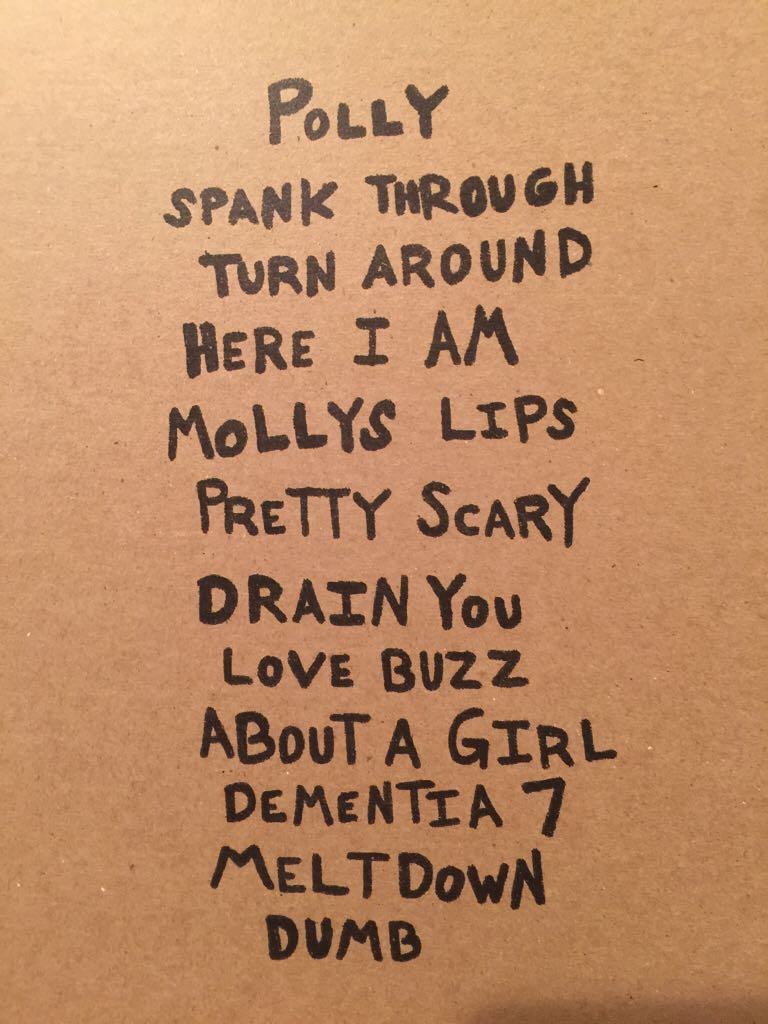 POLLY
SPANK THROUGH
TURN AROUND
HERE I AM
MOLLYS LIPS
PRETTY SCARY
DRAIN YOU
LOVE BUZZ
ABOUT A GIRL
DEMENTIA 7
MELTDOWN
DUMB